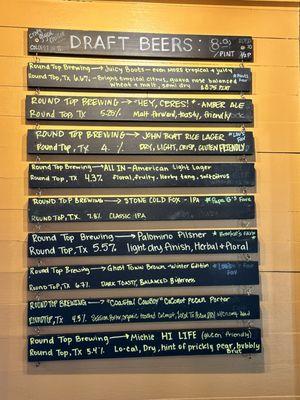 DRAFT BEERS:
PINT
Round Top Brewing Juicy Boots - even more tropical & juicy
Round Top, TX 6.6%. - Bright tropical citrus, guava nose balanced
wheat + malt, semi dry
Round Top Brewing "HEY, CERES!" - AMBER ALE
Round Top, TX 5.26% Malt forward, toasty, friendly
Round Top Brewing JOHN BOAT RICE LAGER
Round Top, TX 4. % DRY, LIGHT, CRISP, GLUTEN FRIENDLY
Round Top Brewing ALL IN - American Light Lager
Round Top, TX 4.3% floral, fruity, Herby tang, soft citrus
Round Top Brewing STONE COLD FOX - IPA
ROUND TOP, TX 7.8% CLASSIC IPA
Round Top Brewing Palomino Pilsner
Round Top, TX 5.5% light dry finish, Herbal & floral
Round Top Brewing Ghost Town Brown - Winter Edition
Round Top, TX 6.7% DARK TOASTY, BALANCED Bitterness
ROUND TOP BREWING "Coastal Cowboy" Coconut Pecan Porter
Round Top, TX 4.5%
Round Top Brewing Michie HI LIFE (gluten friendly)
Round Top, TX 5.4% Local, Dry, hint of prickly pear, bubbly
Brut